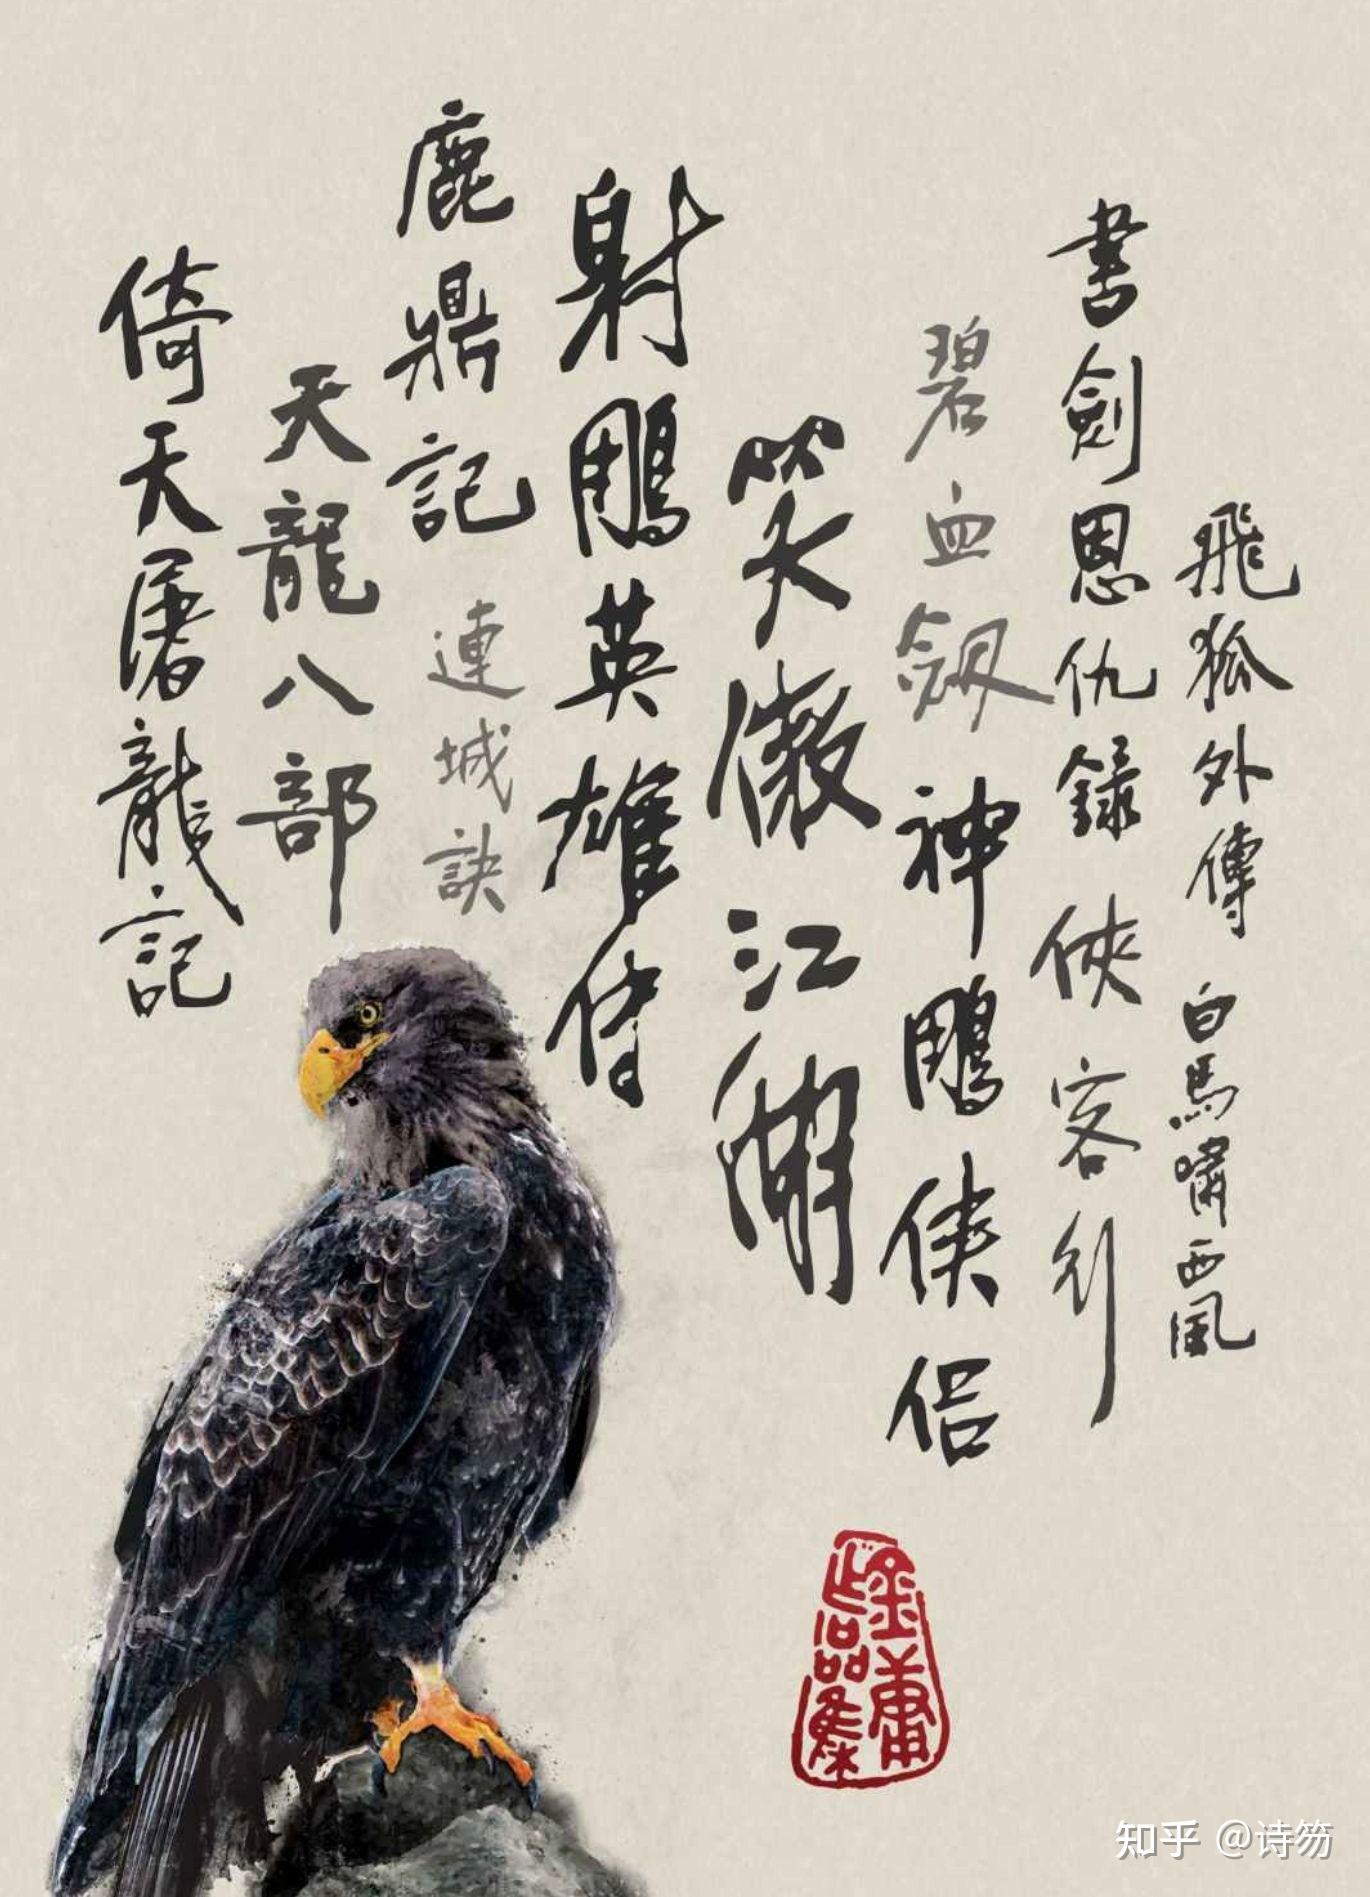 飛狐外傳 白馬嘯西風
書劍恩仇錄 俠客行
碧血劍 神鵰俠侶
笑傲江湖
射鵰英雄傳
鹿鼎記 連城訣
天龍八部
倚天屠龍記
金庸作品集
知乎 @诗笏